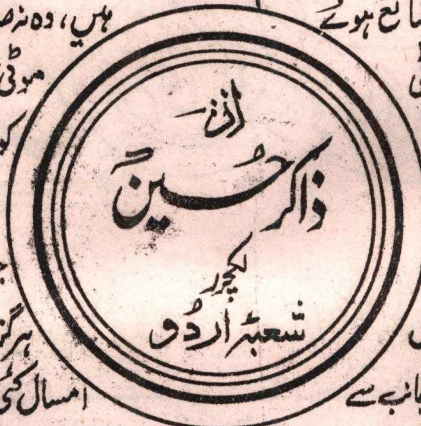 ہیں، وہ نہ صر
ضائع ہوئے
موتی
کو
از
ذاکر حسین
لکچرر
شعبۂ اردو
ہرگز
امسال کئی
جانب سے